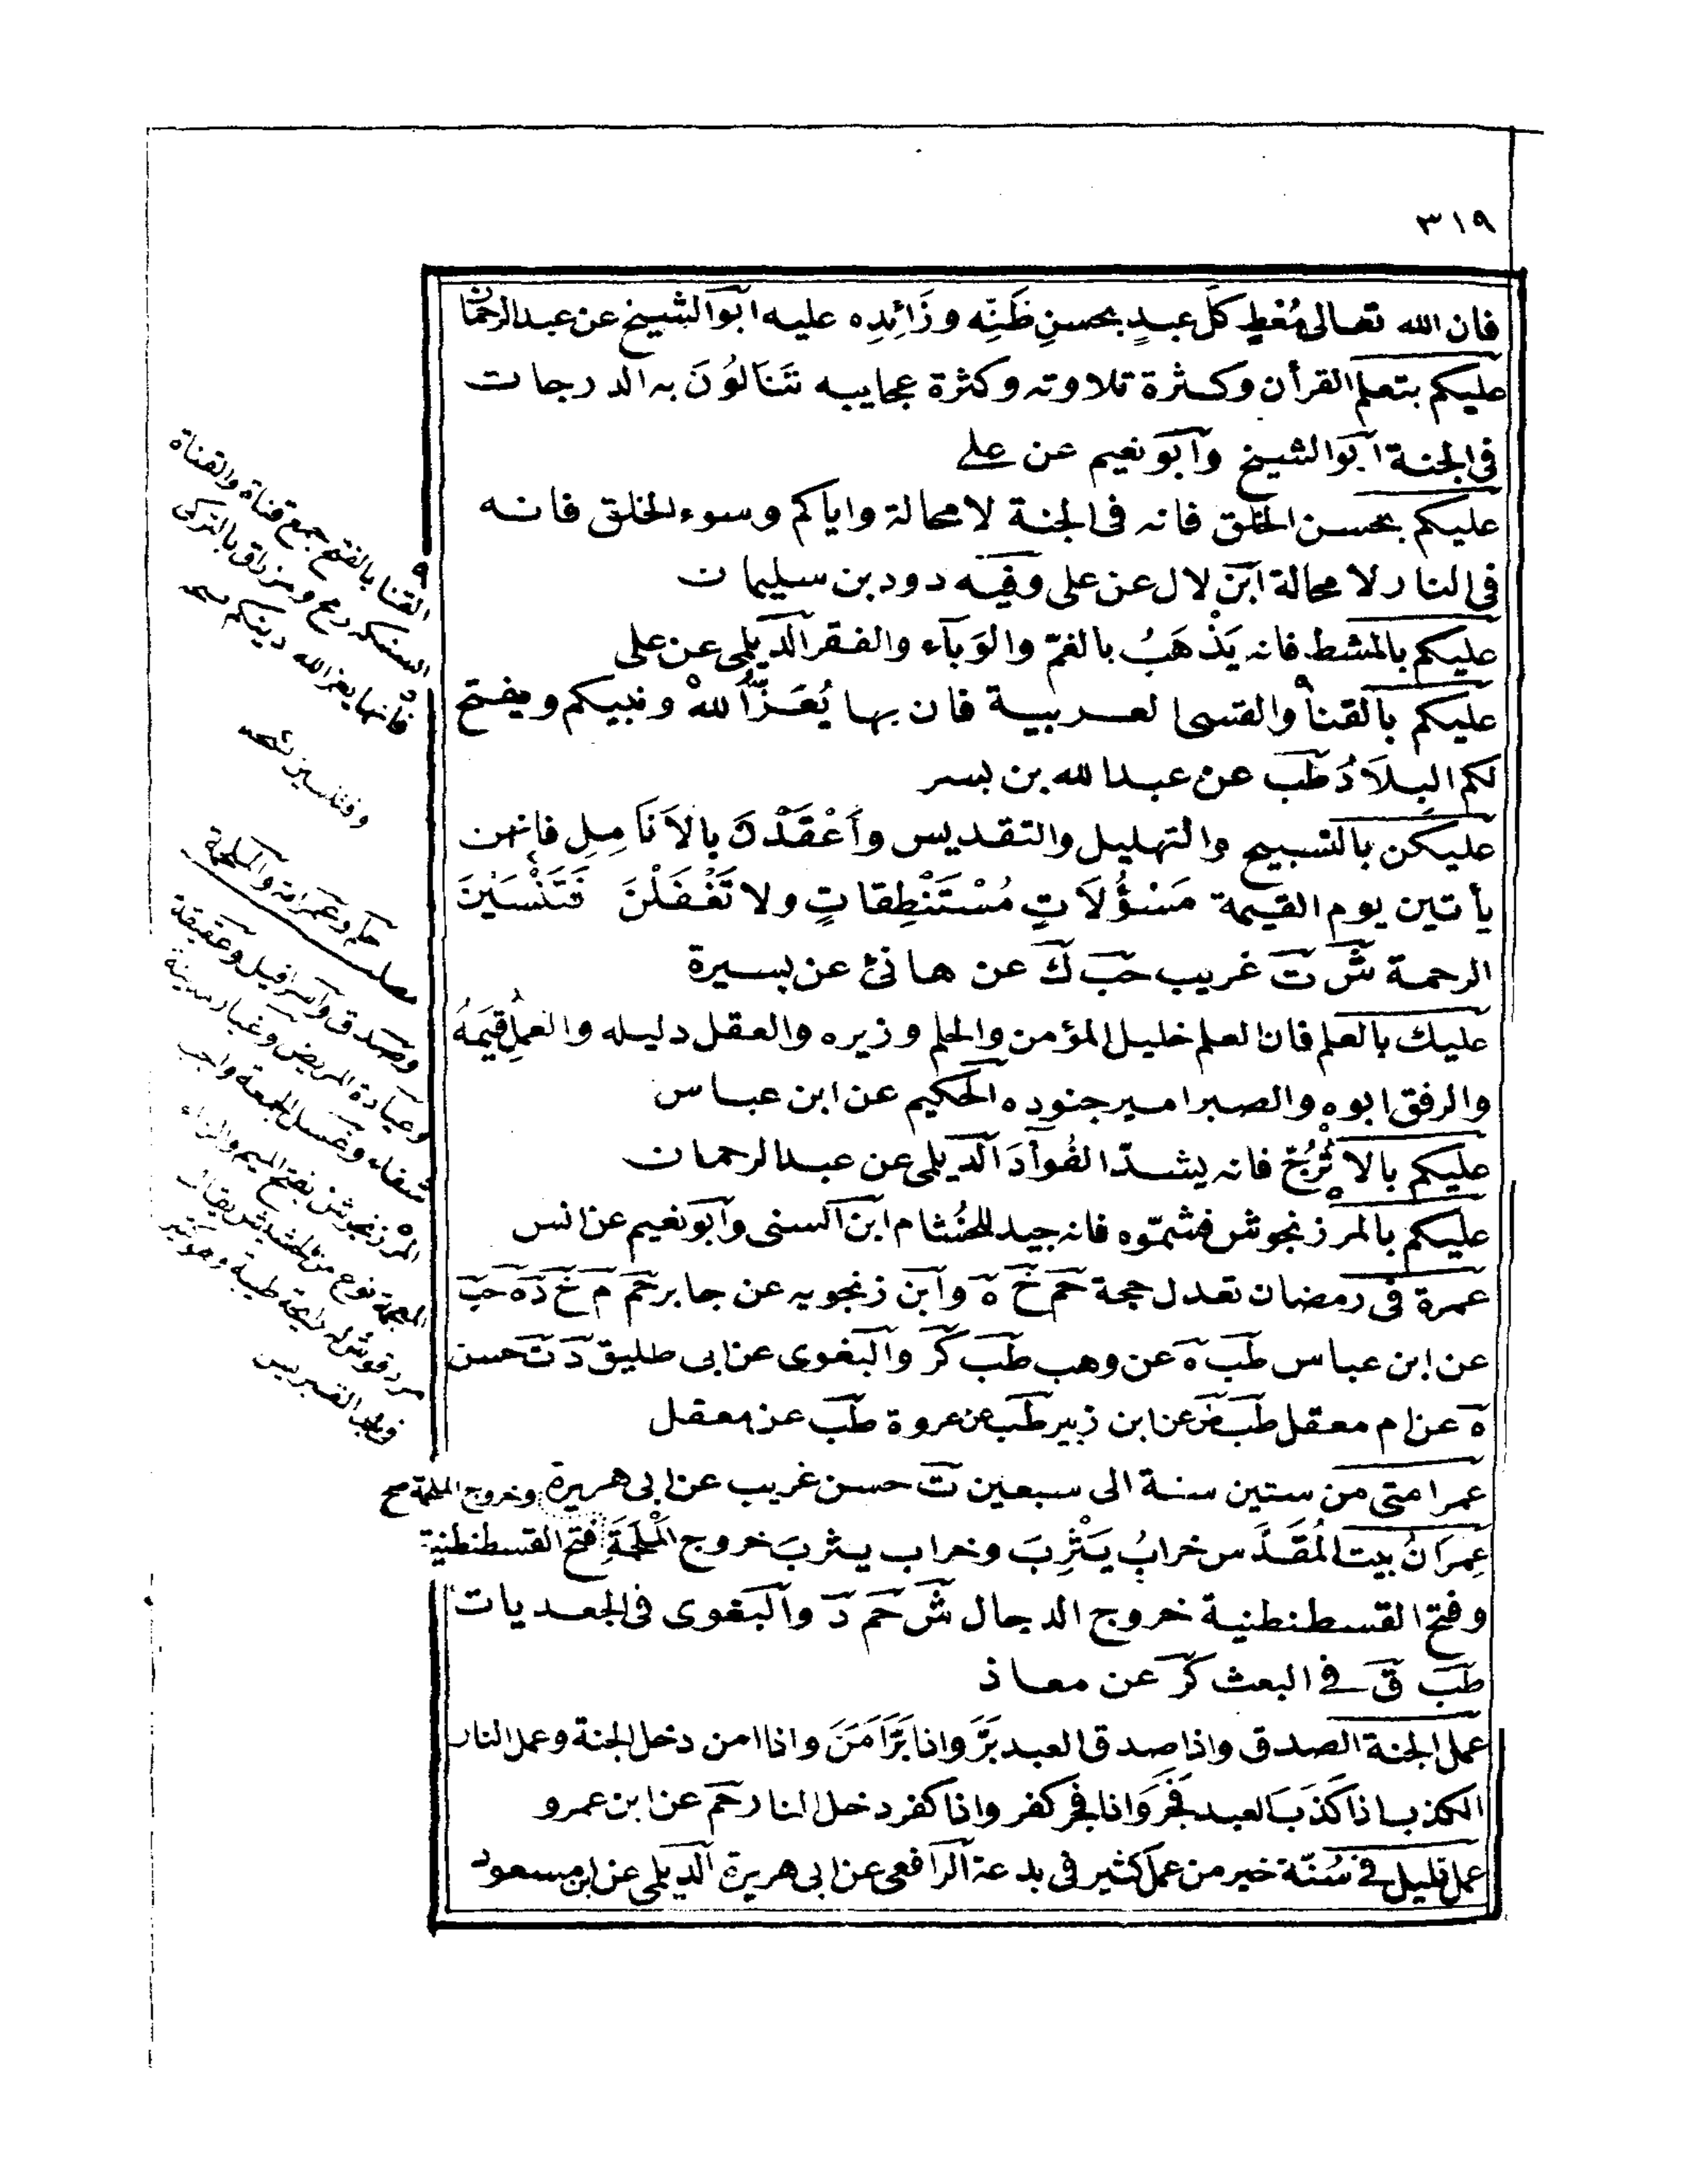 ٣١٩
فان الله تعالى مُعْطٍ كلَّ عبدٍ بحسنِ ظَنِّه وزَائِدِه عليه ابو الشيخ عن عبد الرحمان
عليكم بتعلم القرأن وكثرة تلاوته وكثرة عجايبه تَنَالُونَ به الدرجات
فى الجنة ابو الشيخ وابو نعيم عن على
عليكم بحسن الخلق فانه فى الجنة لا محالة واياكم وسوء الخلق فانه
فى النار لا محالة ابن لال عن على وفيه دود بن سليمان
عليكم بالمشط فانه يَذْهَبُ بالغمّ والوَبَآء والفقر الديلمى عن على
عليكم بالقنا والقسى العربية فان بها يُعَزُّ الله ونبيكم ويفتح
لكم البِلَادُ طب عن عبد الله بن بسر
عليكن بالتسبيح والتهليل والتقديس وأعْقِدْنَ بالأَنَامِلِ فانهن
يأتين يوم القيمة مَسْؤُلَاتٍ مُسْتَنْطِقاتٍ ولا تَغْفَلْنَ فَتَنْسَيْنَ
الرحمة ش ت غريب حب ك عن هانئ عن يسيرة
عليك بالعلم فان العلم خليل المؤمن والحلم وزيره والعقل دليله والعمل قيمَهُ
والرفق ابوه والصبر امير جنوده الحكيم عن ابن عباس
عليكم بالاُتْرُجّ فانه يشدّ الفُوأدَ الديلمى عن عبد الرحمان
عليكم بالمرزنجوش فشمّوه فانه جيد للخُشام ابن السنى وابو نعيم عن انس
عمرة فى رمضان تعدل حجة حم خ ه وابن زنجويه عن جابر حم م خ د ه حب
عن ابن عباس طب ه عن وهب طب كر والبغوى عن ابى طليق د ت حسن
ه عن ام معقل طب ض عن ابن زبير طب عن عروة طب عن معقل
عمر امتى من ستين سنة الى سبعين ت حسن غريب عن ابى هريرة
وخروج الملحمة صح
عِمرَانُ بيت المُقَدَّس خرابُ يَثْرِبَ وخراب يثرب خروج المَلْحَمَة فتح القسطنطنية
وفتح القسطنطنية خروج الدجال ش حم د والبغوى فى الجعديات
طب ق فى البعث كر عن معاذ
عمل الجنة الصدق واذا صدق العبد بَرَّ واذا بَرَّ أمَنَ واذا امن دخل الجنة وعمل النار
الكذب اذا كَذَبَ العبد فَجَرَ واذا فجر كفر واذا كفر دخل النار حم عن ابن عمرو
عمل قليل فى سُنّة خير من عمل كثير فى بدعة الرافعى عن ابى هريرة الديلمى عن ابن مسعود
القنا بالفتح جمع قناة والقناة
رمح ومزراق بالتركى
فانها يعز الله دينكم نسخه
وصدق واسرافيل وعقيقة
وعيادة المريض وغبار مدينة
شفاء وغسل الجمعة واجب
المرزنجوش بفتح الميم والزاء
المعجمة نوع من الحشيش يقال